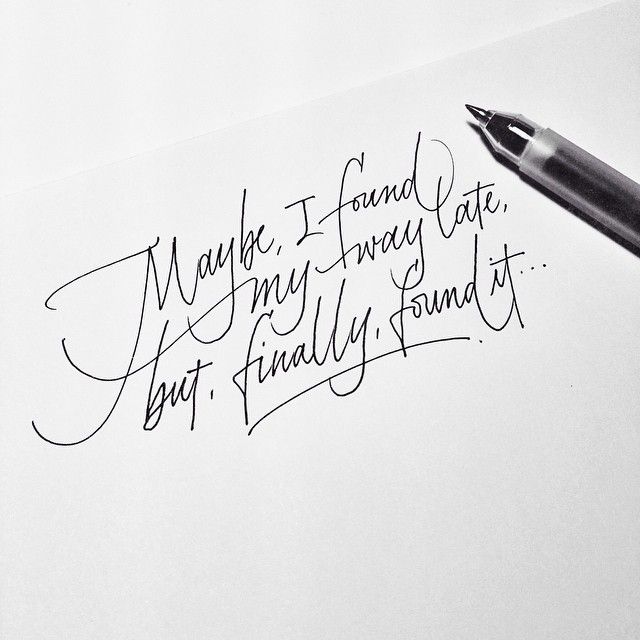 Maybe, I found
my way late,
but, finally, found it...